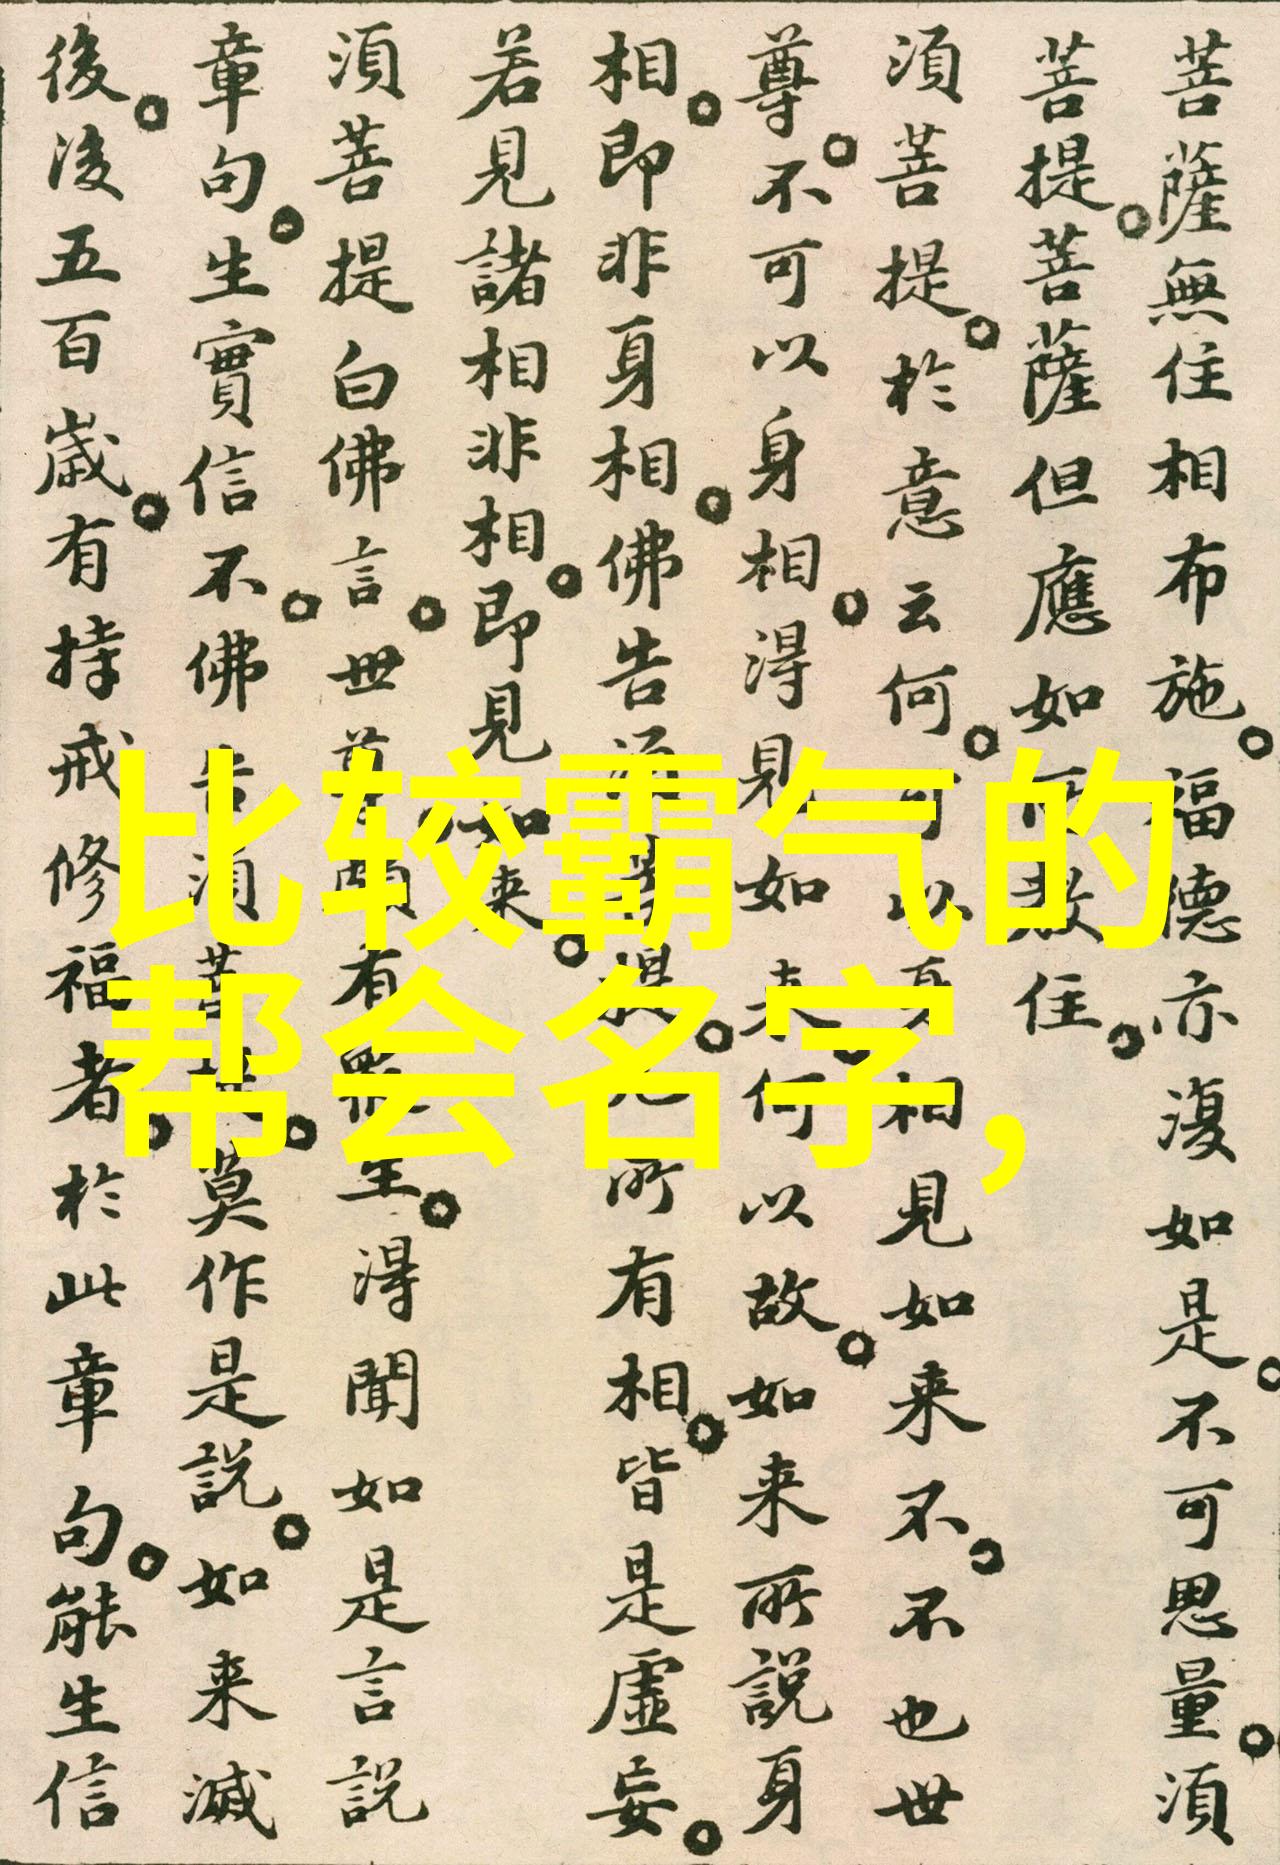 菩薩無住相布施福德亦復如是不可思量須
菩提菩薩但應如所教住
須菩提於意云何可以身相見如来不不也世
尊不可以身相得見如来何以故如来所說身
相即非身相佛告須菩提凡所有相皆是虛妄
若見諸相非相即見如来
須菩提白佛言世尊頗有衆生得聞如是言說
章句生實信不佛告須菩提莫作是說如来滅
後後五百歲有持戒修福者於此章句能生信
比较霸气的
帮会名字，